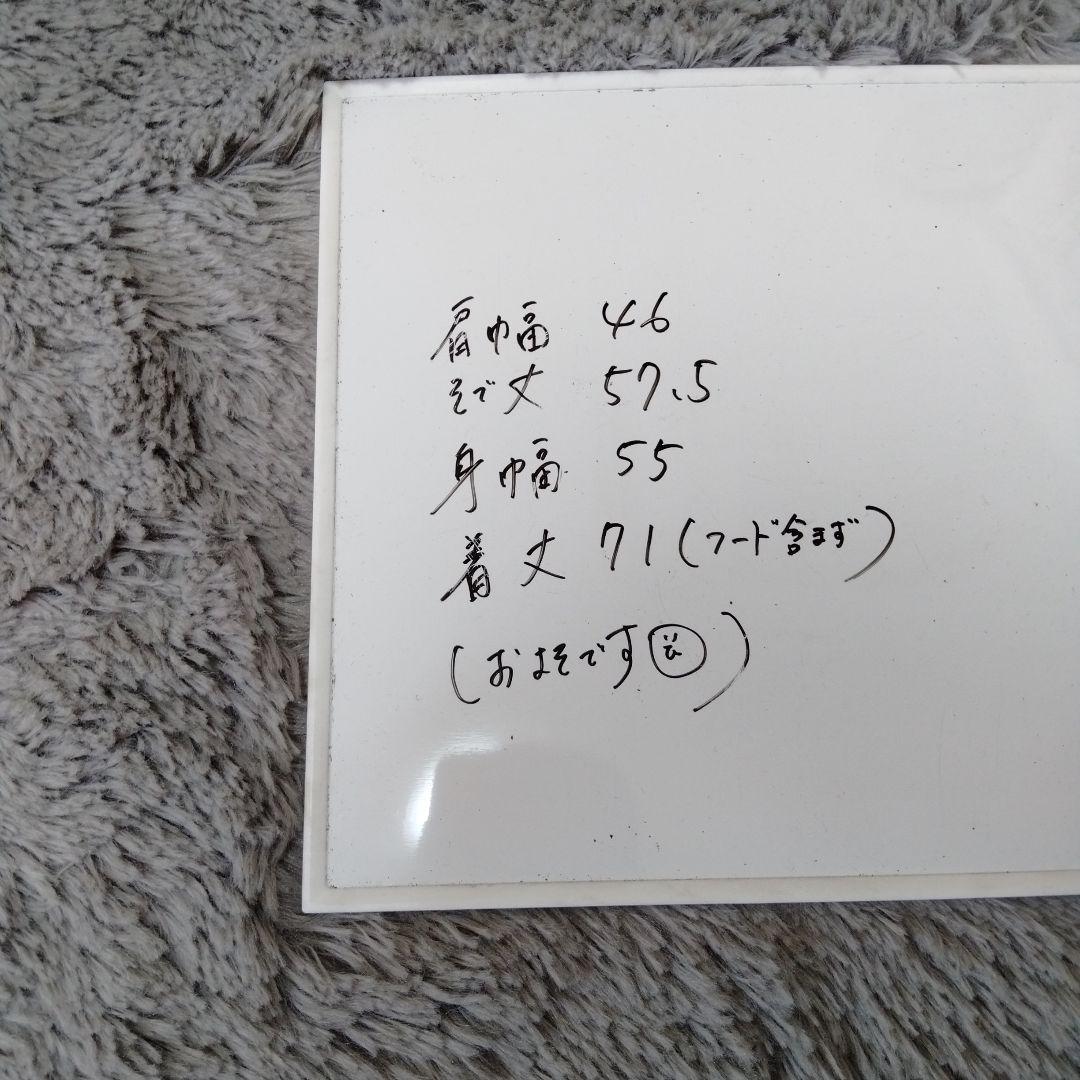 肩幅 46
そで丈 57.5
身幅 55
着丈 71(フード含まず)
(およそです)